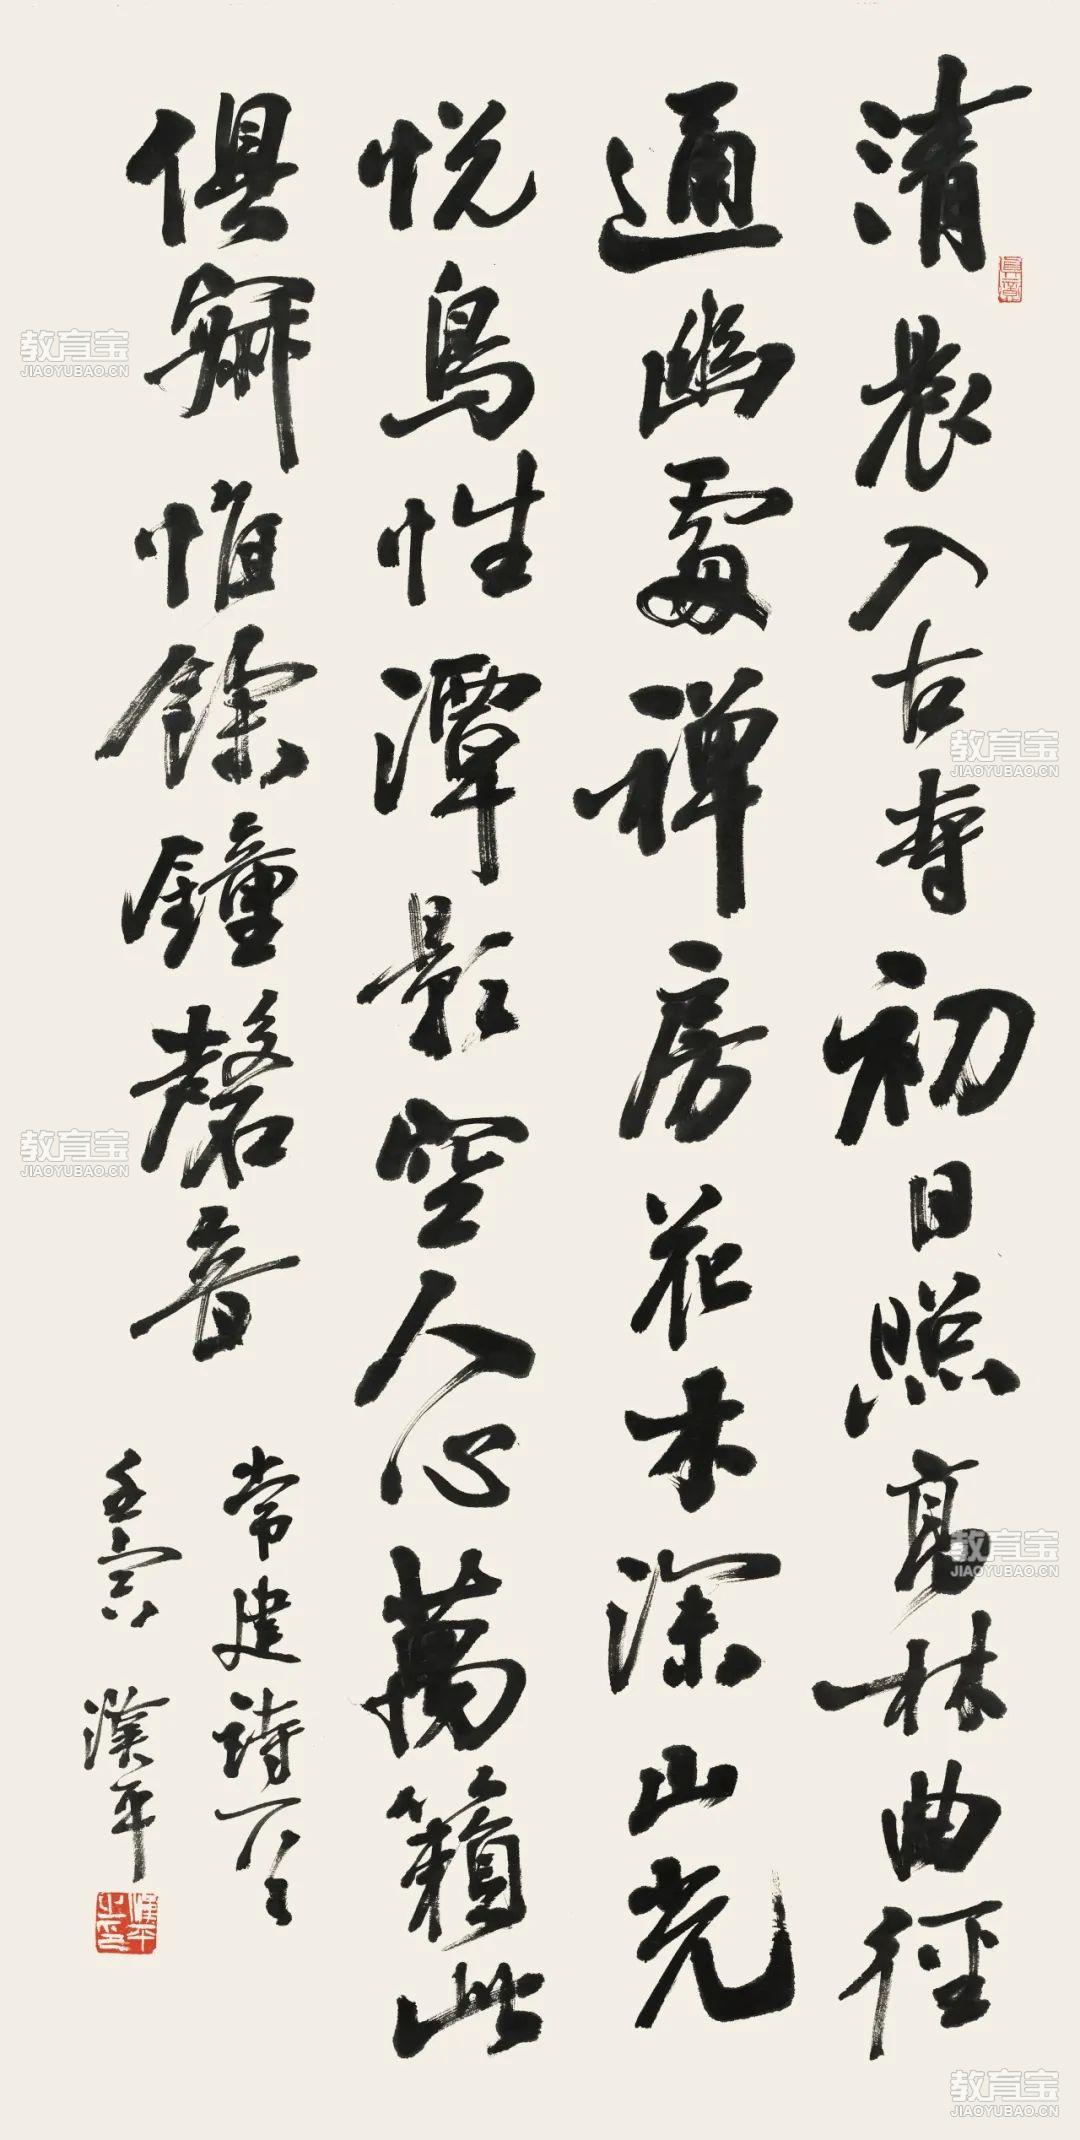 清晨入古寺初日照高林曲徑
通幽處禅房花木深山光
悦鳥性潭影空人心萬籟此
俱寂惟餘鐘磬音
常建詩一首
壬寅 漢平
漢平之印
教育宝
JIAOYUBAO.CN
教育宝
JIAOYUBAO.CN
教育宝
JIAOYUBAO.CN
教育宝
JIAOYUBAO.CN
教育宝
JIAOYUBAO.CN